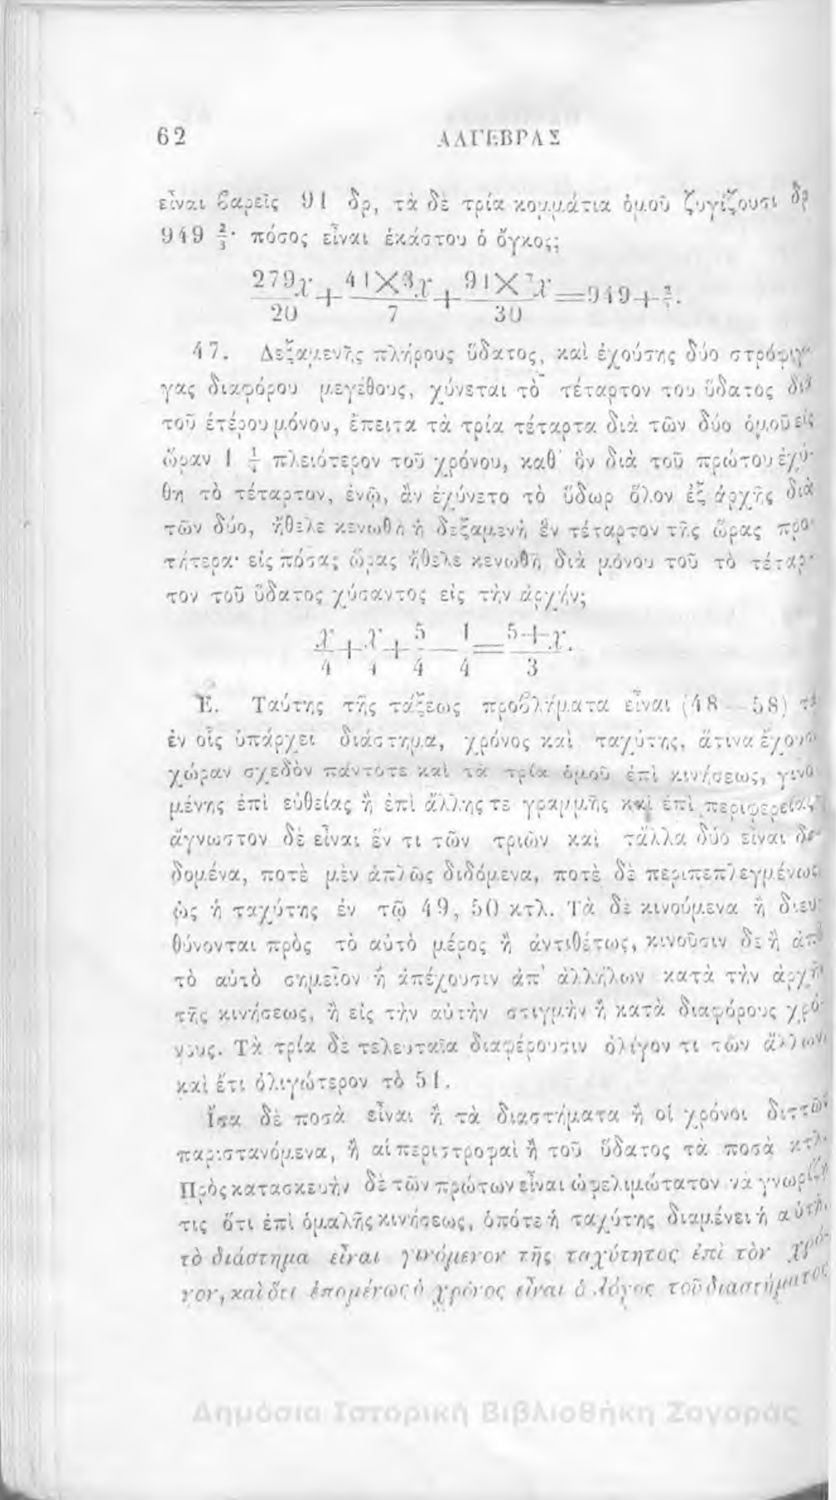 62 ΑΛΓΕΒΡΑΣ
εἶναι βαρεῖς 91 δρ, τὰ δὲ τρία κομμάτια ὁμοῦ ζυγίζουσι δρ
949 ⅔· πόσος εἶναι ἑκάστου ὁ ὄγκος;
279x/20 + 41×3x/7 + 91×7x/30 = 949 + ⅔.
47. Δεξαμενῆς πλήρους ὕδατος, καὶ ἐχούσης δύο στρόφιγ-
γας διαφόρου μεγέθους, χύνεται τὸ τέταρτον του ὕδατος διὰ
τοῦ ἑτέρου μόνου, ἔπειτα τὰ τρία τέταρτα διὰ τῶν δύο ὁμοῦ εἰς
ὥραν 1 ¼ πλειότερον τοῦ χρόνου, καθ' ὃν διὰ τοῦ πρώτου ἐχύ-
θη τὸ τέταρτον, ἐνῷ, ἂν ἐχύνετο τὸ ὕδωρ ὅλον ἐξ ἀρχῆς διὰ
τῶν δύο, ἤθελε κενωθῆ ἡ δεξαμενὴ ἓν τέταρτον τῆς ὥρας προ-
τήτερα· εἰς πόσας ὥρας ἤθελε κενωθῆ διὰ μόνου τοῦ τὸ τέταρ-
τον τοῦ ὕδατος χύσαντος εἰς τὴν ἀρχήν;
x/4 + x/4 + 5/4 − 1/4 = 5+x/3.
Ε. Ταύτης τῆς τάξεως προβλήματα εἶναι (48—58) τὰ
ἐν οἷς ὑπάρχει διάστημα, χρόνος καὶ ταχύτης, ἅτινα ἔχουσι
χώραν σχεδὸν πάντοτε καὶ τὰ τρία ὁμοῦ ἐπὶ κινήσεως, γινο-
μένης ἐπὶ εὐθείας ἢ ἐπὶ ἄλλης τε γραμμῆς καὶ ἐπὶ περιφερείας,
ἄγνωστον δὲ εἶναι ἕν τι τῶν τριῶν καὶ τἄλλα δύο εἶναι δε-
δομένα, ποτὲ μὲν ἁπλῶς διδόμενα, ποτὲ δὲ περιπεπλεγμένως,
ὡς ἡ ταχύτης ἐν τῷ 49, 50 κτλ. Τὰ δὲ κινούμενα ἢ διευ-
θύνονται πρὸς τὸ αὐτὸ μέρος ἢ ἀντιθέτως, κινοῦσιν δὲ ἢ ἀπὸ
τὸ αὐτὸ σημεῖον ἢ ἀπέχουσιν ἀπ' ἀλλήλων κατὰ τὴν ἀρχὴν
τῆς κινήσεως, ἢ εἰς τὴν αὐτὴν στιγμὴν ἢ κατὰ διαφόρους χρό-
νους. Τὰ τρία δὲ τελευταῖα διαφέρουσιν ὀλίγον τι τῶν ἄλλων,
καὶ ἔτι ὀλιγώτερον τὸ 51.
Ἴσα δὲ ποσὰ εἶναι ἢ τὰ διαστήματα ἢ οἱ χρόνοι διττῶς
παριστανόμενα, ἢ αἱ περιστροφαὶ ἢ τοῦ ὕδατος τὰ ποσὰ κτλ.
Πρὸς κατασκευὴν δὲ τῶν πρώτων εἶναι ὠφελιμώτατον νὰ γνωρίζῃ
τις ὅτι ἐπὶ ὁμαλῆς κινήσεως, ὁπότε ἡ ταχύτης διαμένει ἡ αὐτή,
τὸ διάστημα εἶναι γινόμενον τῆς ταχύτητος ἐπὶ τὸν χρό-
νον, καὶ ὅτι ἑπομένως ὁ χρόνος εἶναι ὁ λόγος τοῦ διαστήματος
Δημόσια Ιστορική Βιβλιοθήκη Ζαγοράς